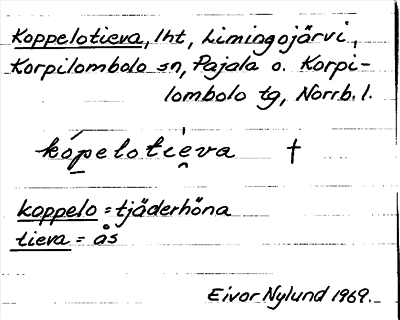 Koppelotieva, lht, Limingojärvi,
Korpilombolo sn, Pajala o. Korpi-
lombolo tg, Norrb. l.
kópelotíeva †
koppelo = tjäderhöna
tieva = ås
Eivor Nylund 1969.